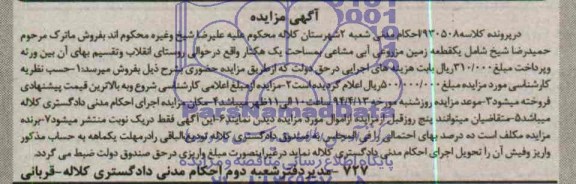 آگهی مزایده
درپرونده کلاسه ۹۳۰۵۰۸ احکام مدنی شعبه ۲ شهرستان کلاله محکوم علیه علیرضا شیخ وغیره محکوم اند بفروش ماترک مرحوم
حمیدرضا شیخ شامل یکقطعه زمین مزروعی آبی مشاعی بمساحت یک هکتار واقع درحوالی روستای انقلاب وتقسیم بهای آن بین ورثه
وپرداخت مبلغ ۳۱۰/۰۰۰ ریال بابت هزینه های اجرایی درحق دولت که ازطریق مزایده حضوری بشرح ذیل بفروش میرسد: ۱-حسب نظریه
کارشناسی مورد مزایده مبلغ ۵۰۰/۰۰۰/۰۰۰ ریال اعلام گردیده است ۲-مزایده ازمبلغ اعلامی کارشناسی شروع وبه بالاترین قیمت پیشنهادی
فروخته میشود ۳-موعد مزایده روزشنبه مورخه ۹۴/۴/۱۳ ساعت ۱۰ الی ۱۱ ظهر میباشد ۴-مکان مزایده اجرای احکام مدنی دادگستری کلاله
میباشد ۵-متقاضیان میتوانند پنج روزقبل از مزایده ازاموال مورد مزایده دیدن نمایند ۶-این آگهی فقط دریک نوبت منتشر میشود ۷-برنده
مزایده مکلف است ده درصد بهای احتمالی را فی المجلس به صندوق دادگستری کلاله تودیع الباقی رادرمهلت یکماهه به حساب مذکور
واریز وفیش آن را تحویل اجرای احکام مدنی دادگستری کلاله نماید درغیراینصورت مبلغ واریزی درحق صندوق دولت ضبط می گردد.
۷۲۷ -مدیردفترشعبه دوم احکام مدنی دادگستری کلاله-قربانی
پایگاه اطلاع رسانی مناقصه و مزایده